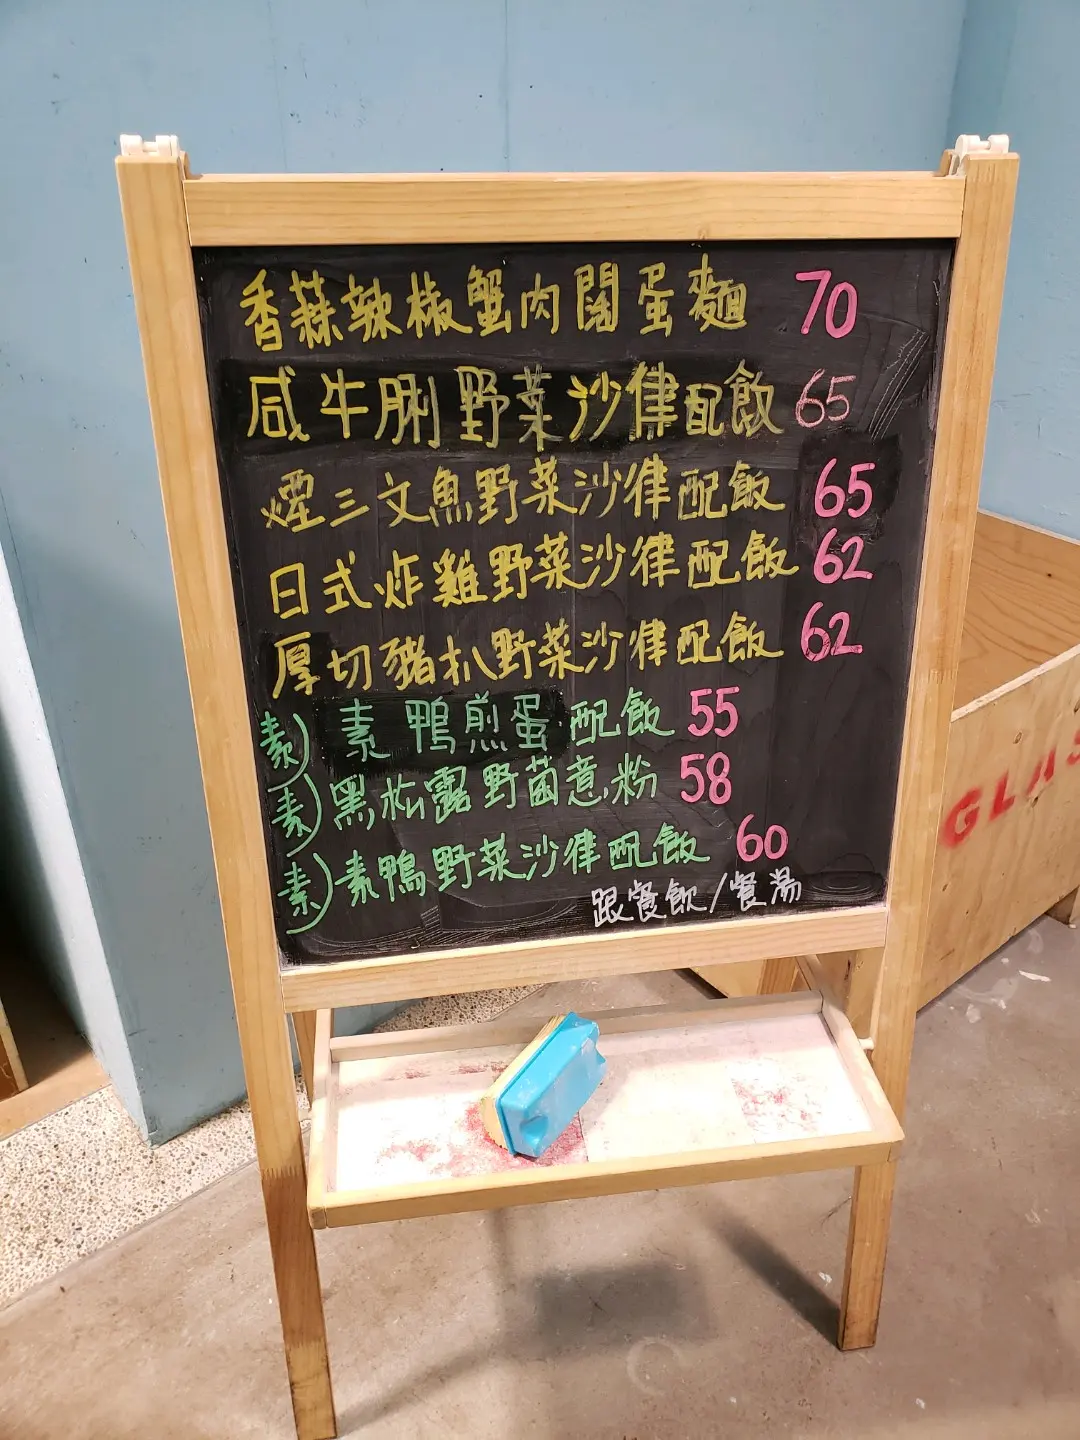 香蒜辣椒蟹肉闊蛋麵 70
咸牛脷野菜沙律配飯 65
煙三文魚野菜沙律配飯 65
日式炸雞野菜沙律配飯 62
厚切豬扒野菜沙律配飯 62
素) 素鴨煎蛋配飯 55
素) 黑松露野菌意粉 58
素) 素鴨野菜沙律配飯 60
跟餐飲/餐湯
GLAS